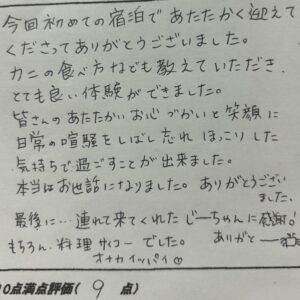 今回初めての宿泊であたたかく迎えて
くださってありがとうございました。
カニの食べ方なども教えていただき、
とても良い体験ができました。
皆さんのあたたかいお心づかいと笑顔に
日常の喧騒をしばし忘れ ほっこりした
気持ちで過ごすことが出来ました。
本当はお世話になりました。ありがとうござい
ました。
最後に… 連れて来てくれた じーちゃんに感謝!
もちろん、料理サイコーでした。 ありがと
オナカイッパイ
10点満点評価( 9 点)